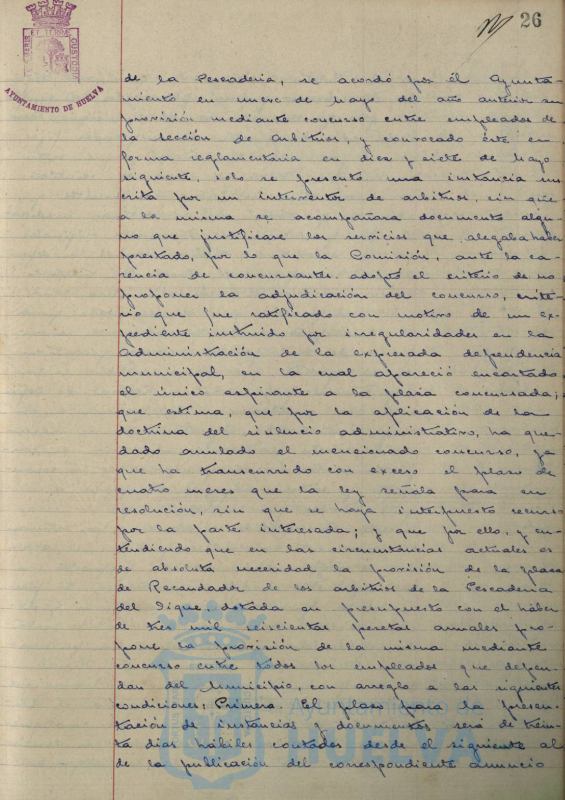 26
AYUNTAMIENTO DE HUELVA
de la Pescaderia, se acordó por él Ayunta-
miento en nueve de Mayo del año anterior su
provisión mediante concurso entre empleados de
la Sección de Arbitrios, y convocado éste en
forma reglamentaria en diez y siete de Mayo
siguiente, solo se presentó una instancia sus
crita por un interventor de arbitrios, sin que
a la misma se acompañara documento algu-
no que justificase los servicios que alegaba haber
prestado, por lo que la Comisión, ante la ca-
rencia de concursantes adoptó el criterio de no
proponer la adjudicación del concurso, crite-
rio que fue ratificado con motivo de un ex-
pediente instruido por irregularidades en la
Administración de la expresada dependencia
municipal, en la cual apareció encartado
el único aspirante a la plaza concursada;
que estima, que por la aplicación de la
doctrina del silencio administrativo, ha que-
dado anulado el mencionado concurso, ya
que ha transcurrido con exceso el plazo de
cuatro meses que la ley señala para su
resolución, sin que se haya interpuesto recurso
por la parte interesada; y que por ello, y en-
tendiendo que en las circunstancias actuales es
de absoluta necesidad la provisión de la plaza
de Recaudador de los arbitrios de la Pescaderia
del Dique, dotada en presupuesto con el haber
de tres mil seiscientas pesetas anuales pro-
pone la provisión de la misma mediante
concurso entre todos los empleados que depen-
dan del Municipio, con arreglo a las siguientes
condiciones: Primera. El plazo para la presen-
tación de instancias y documentos será de trein-
ta dias hábiles contados desde el siguiente al
de la publicación del correspondiente anuncio
Ayuntamiento de
HUELVA